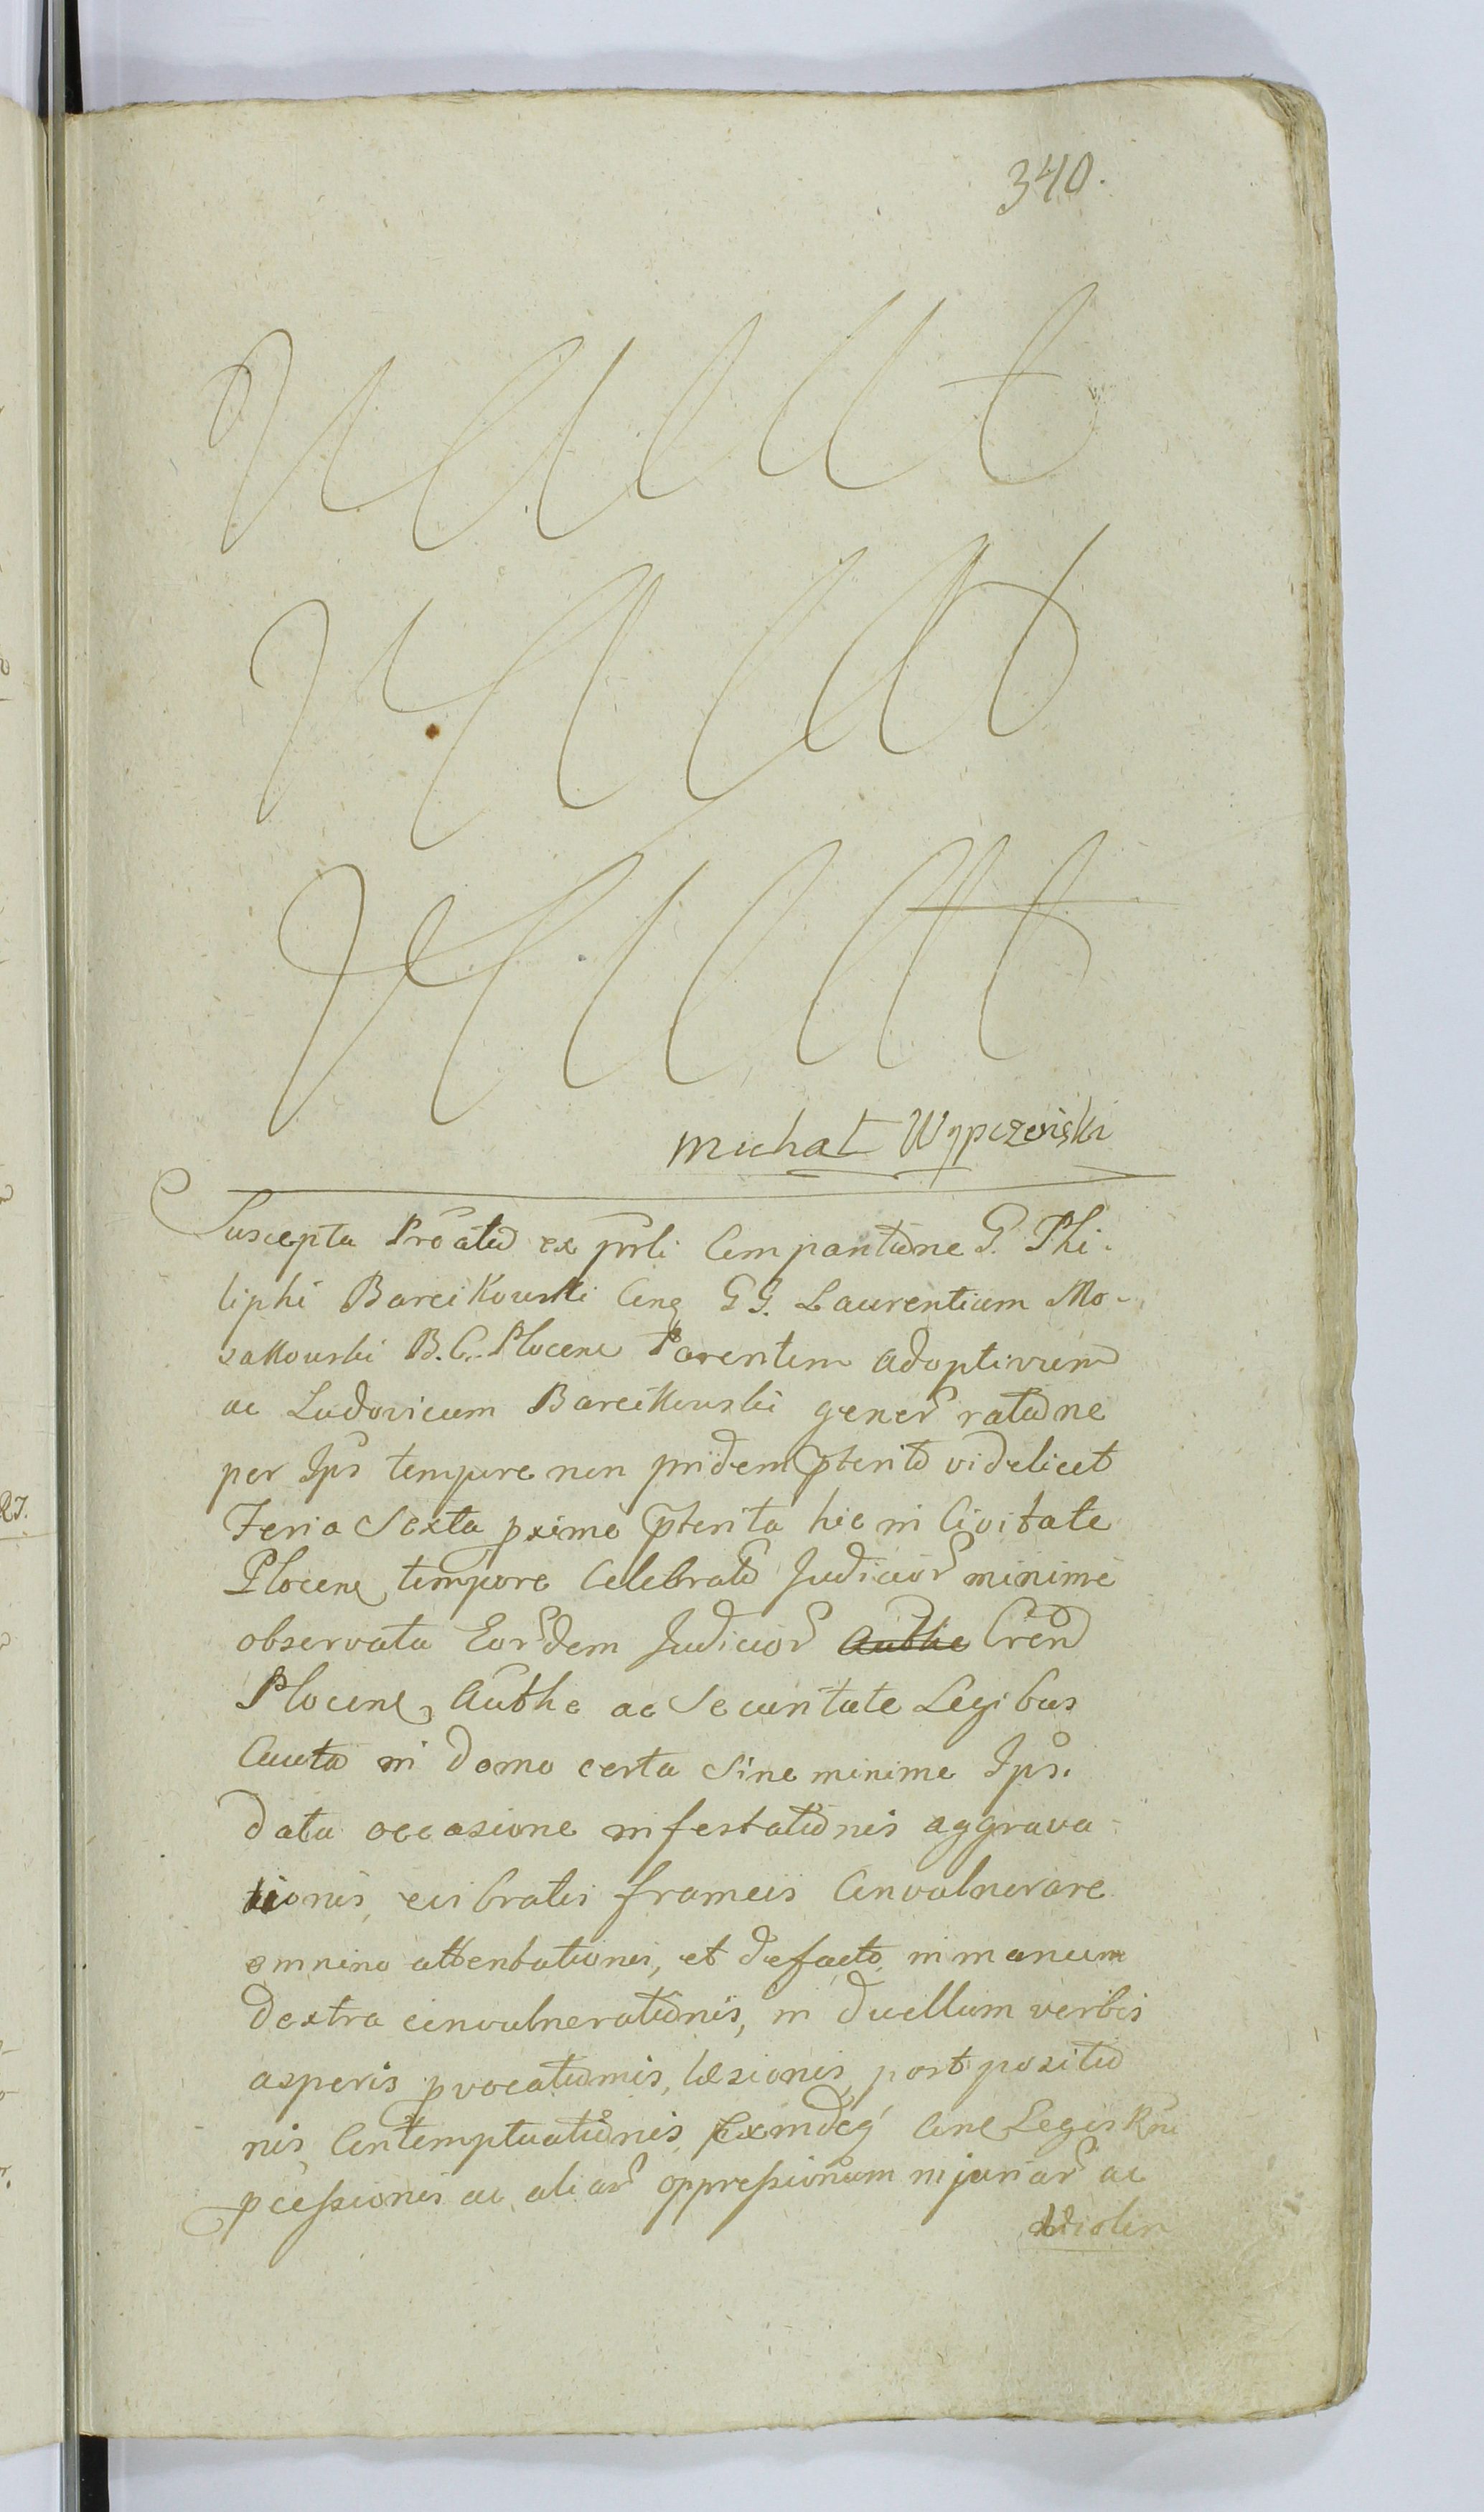 340.
Michał Wypczeński
Suscepta Pro͠atio ex prli Comparitione G. Phi-
liphi Barcikowski Cong GG. Laurentium Mo-
zakowski B.C. Plocens Parentem adoptivum
ac Ludovicum Barcikowski gener͠ ratione
per Ips͠ tempore non pridem pterito videlicet
Feria Sexta pximo pterita hic in Civitate
Plocens tempore Celebrato͠ Judicior͠ minime
observata Eor͠dem Judicior͠ Authe Cren͠
Plocens Authe ac Securitate Legibus
Cauta in domo certa sine minime Ips͠.
data occasione infestationis aggrava-
tionis, evibratis frameis Convulnerare
omnino attentationis, et defacto in manum
dextra convulnerationis, in duellum verbis
asperis pvocationis, læsionis, post positio
nis Contemptuationis Exindeq Cone Legis Rni
pcessionis ac aliar͠ oppressionum injuriar͠ ac
violen